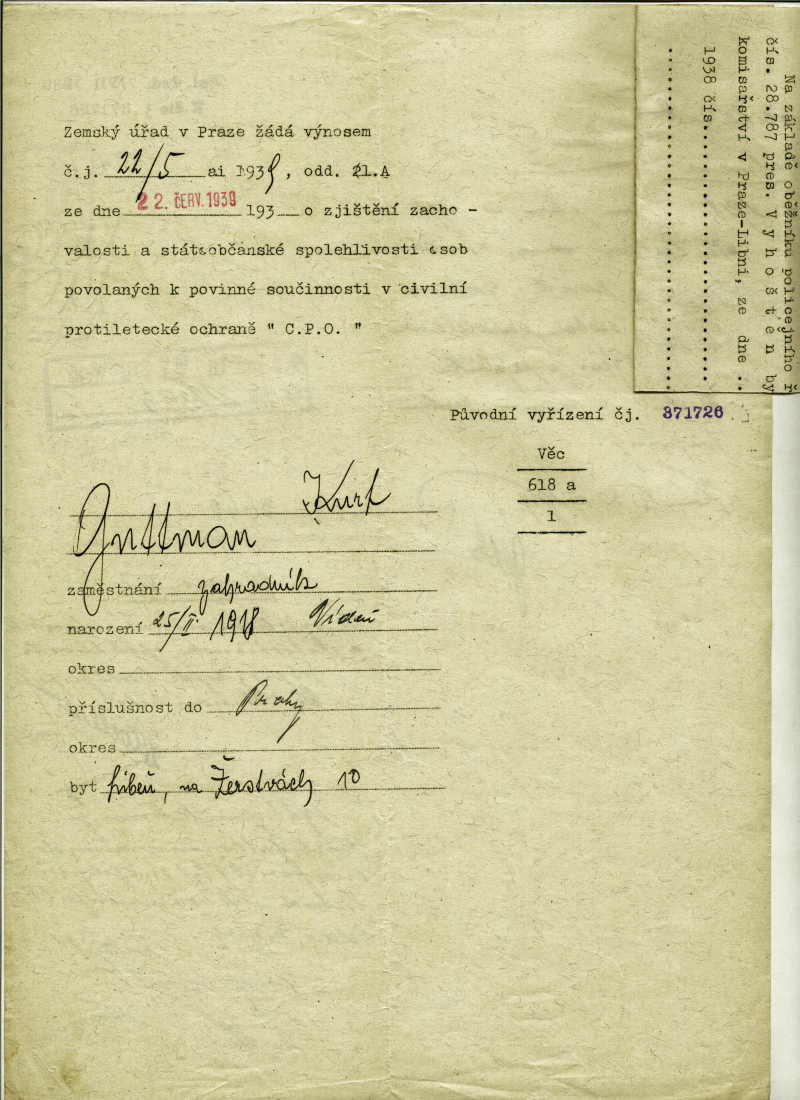 Zemský úřad v Praze žádá výnosem
č.j. 22/5 ai 1939, odd. 21.A
ze dne 22. ČERV. 1939 193 o zjištění zacho -
valosti a státoobčanské spolehlivosti osob
povolaných k povinné součinnosti v civilní
protiletecké ochraně " C.P.O. "
Na základě oběžníku policejního ř
čís. 28.787 pres. V y h o š t ě n by
komisařství v Praze-Libni, ze dne ..
1938 čís.
Původní vyřízení čj. 371726
Věc
618 a
1
Kurt
Guttman
zaměstnání zahradník
narození 25/II. 1918 Vídeň
okres
příslušnost do Prahy
okres
byt Libeň, na Žertvách 10